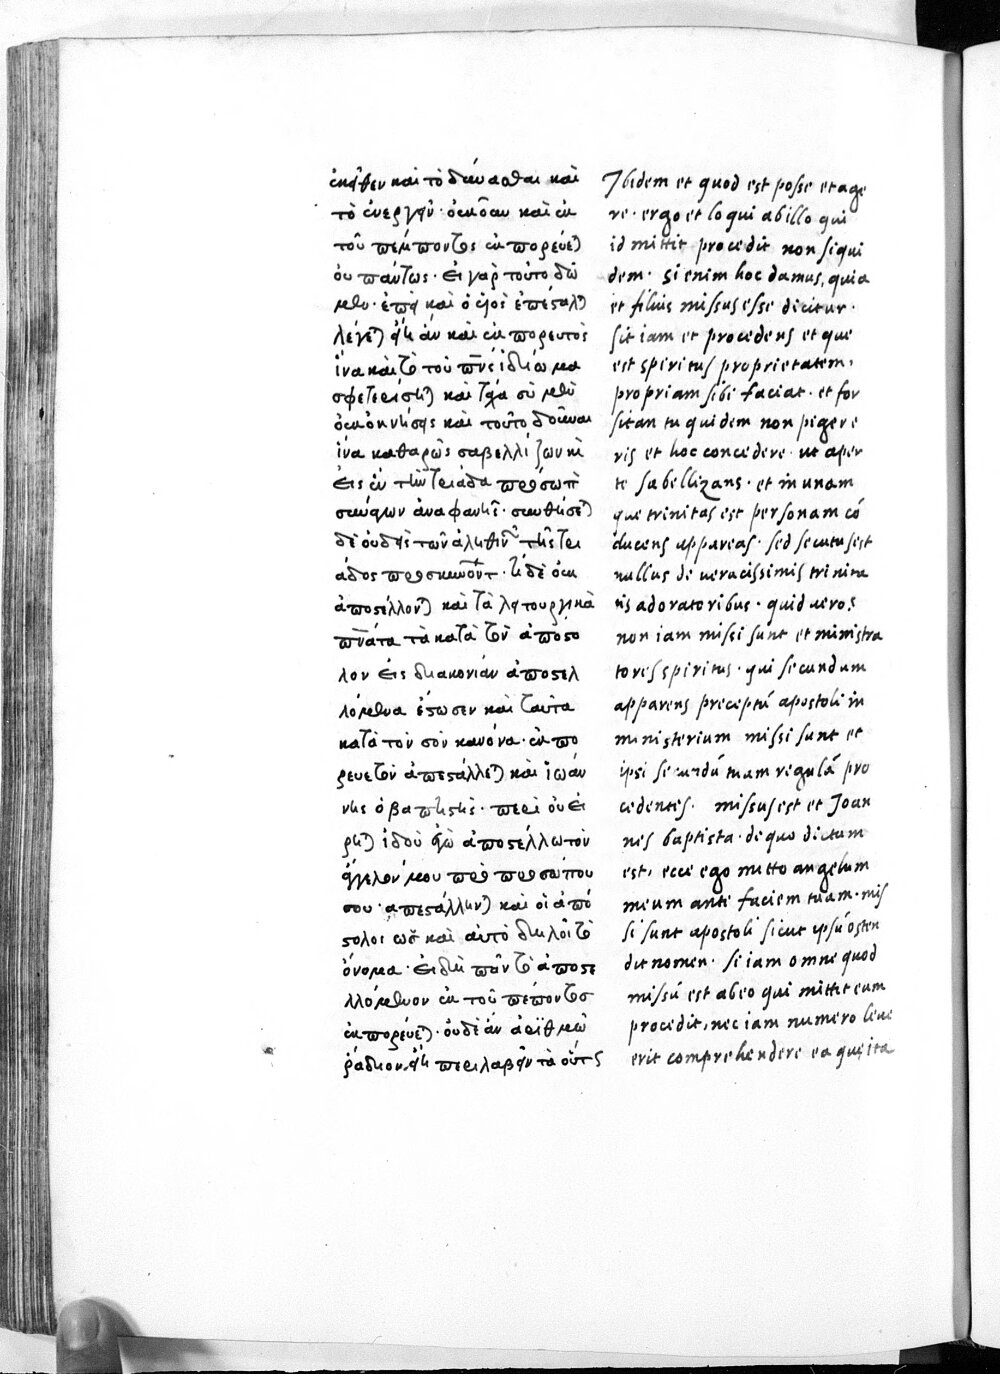 ἐκεῖθεν καὶ τὸ δύνασθαι καὶ
τὸ ἐνεργεῖν· οὐκοῦν καὶ ἐκ
τοῦ πέμποντος ἐκπορεύετ)
οὐ πάντως· εἰ γὰρ τοῦτο δῶ
μεν· ἐπεὶ καὶ ὁ υἱὸς ἀπεσταλ)
λέγετ) εἴη ἂν καὶ ἐκπορευτὸς
ἵνα καὶ τὸ τοῦ πν̅ς ἰδίωμα
σφετερίσητ) καὶ τάχα σὺ μὲν
οὐκ ὀκνήσεις καὶ τοῦτο δοῦναι
ἵνα καθαρῶς σαβελλίζων καὶ
εἰς ἓν τὴν τριάδα πρόσωπ
συνάγων ἀναφανῇς· συνθήσετ)
δὲ οὐδεὶς τῶν ἀληθιν τῆς τρι
άδος προσκυνούντ· τί δὲ οὐκ
ἀποστέλλοντ) καὶ τὰ λειτουργικὰ
πν̅ατα τὰ κατὰ τὸν ἀπόστο
λον εἰς διακονίαν ἀποστελ
λόμενα ἔστωσαν καὶ ταῦτα
κατὰ τὸν σὸν κανόνα· ἐκπο
ρευετὸν ἀπεστάλλετ) καὶ ἰωάν
νης ὁ βαπτιστής· περὶ οὗ εἴ
ρητ) ἰδοὺ ἐγὼ ἀποστέλλω τὸν
ἄγγελόν μου πρὸ προσώπου
σου· ἀπεστάλησαν καὶ οἱ ἀπό
στολοι ὡς καὶ αὐτὸ δηλοῖ τὸ
ὄνομα· εἰ δὴ πᾶν τὸ ἀποστε
λλόμενον ἐκ τοῦ πέμποντος
ἐκπορεύετ)· οὐδὲ ἂν ἀριθμῷ
ῥάδιον εἴη περιλαβεῖν τὰ οὕτως
Ibidem et quod est posse et age
re· ergo et loqui ab illo qui
id mittit procedit non siqui
dem· si enim hoc damus, quia
et filius missus esse dicitur·
sit iam et procedens et que
est spiritus proprietatem,
propriam sibi faciat· et for
sitan tu quidem non pigere
ris et hoc concedere· ut aper
te sabellizans· et in unam
que trinitas est personam có
ducens appareas· sed secutus est
nullus de veracissimis trinita
tis adoratoribus· quid vero, s
non iam missi sunt et ministra
tores spiritus· qui secundum
apparens preceptú apostoli in
ministerium missi sunt et
ipsi secundú tuam regulá pro
cedentes· missus est et Joan
nes baptista· de quo dictum
est, ecce ego mitto angelum
meum ante faciem tuam· mis
si sunt apostoli sicut ipsú osten
dit nomen· si iam omne quod
missú est ab eo qui mittit eum
procedit, nec iam numero leve
erit comprehendere ea que ita